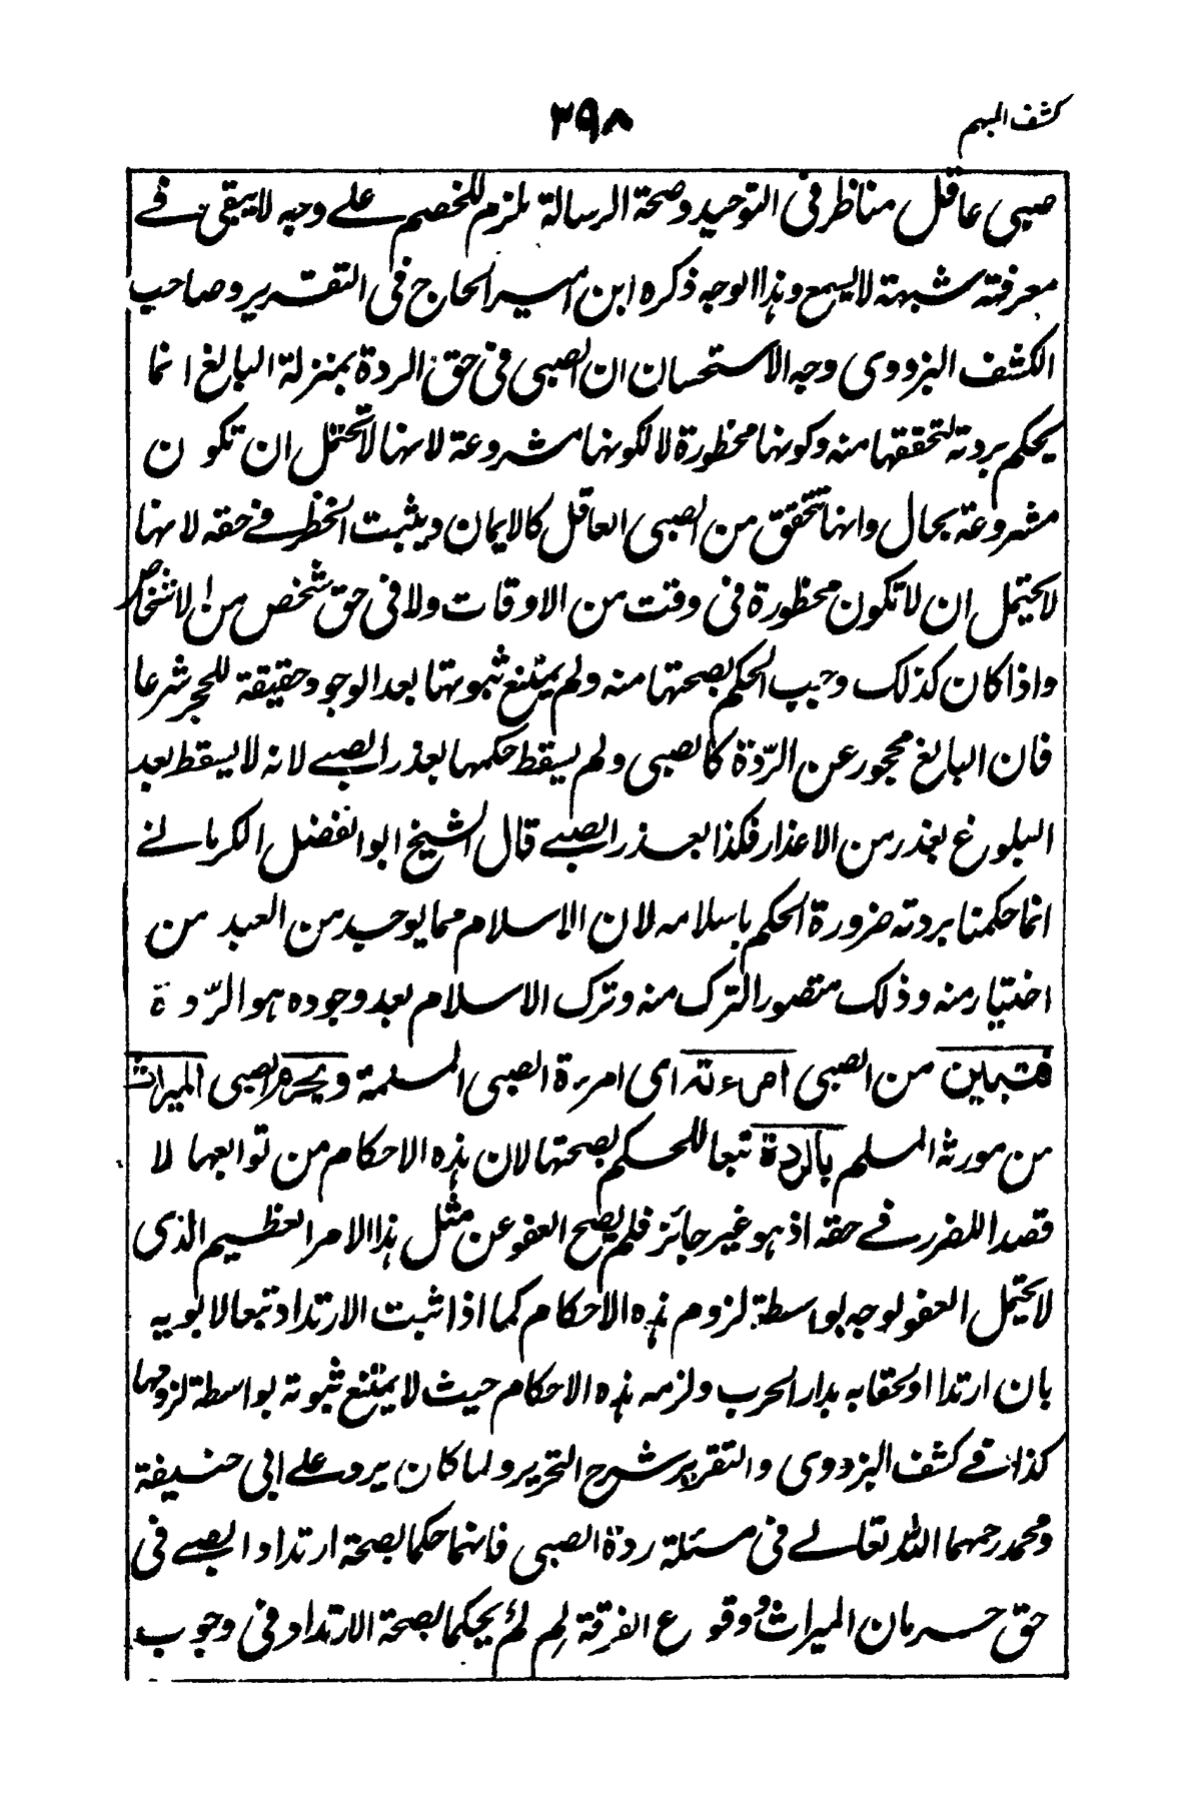 كشف المبهم
٣٩٨
صبى عاقل مناظر فى التوحيد وصحة الرسالة يلزم للخصم على وجه لا يبقى فى
معرفته شبهة لا يسمع وهذا الوجه ذكره ابن امير الحاج فى التقرير وصاحب
الكشف البزدوى وجه الاستحسان ان الصبى فى حق الردة بمنزلة البالغ انما
يحكم بردته لتحققها منه وكونها محظورة لا لكونها مشروعة لانها لا تحتمل ان تكون
مشروعة بحال وانها تتحقق من الصبى العاقل كالايمان ويثبت الحظر فى حقه لانها
لا يحتمل ان لا تكون محظورة فى وقت من الاوقات ولا فى حق شخص من الاشخاص
واذا كان كذلك وجب الحكم بصحتها منه ولم يمتنع ثبوتها بعد الوجود حقيقة للحجر شرعا
فان البالغ محجور عن الردّة كالصبى ولم يسقط حكمها بعذر الصبى لانه لا يسقط بعد
البلوغ بعذر من الاعذار فكذا بعذر الصبى قال الشيخ ابو الفضل الكرمانى
انما حكمنا بردته ضرورة الحكم باسلامه لان الاسلام مما يوجد من العبد من
اختيار منه وذلك متصور الترك منه وترك الاسلام بعد وجوده هو الرّدة
فتبين من الصبى امرءته اى امرءة الصبى المسلمة ويحرم الصبى الميراث
من مورثه المسلم بالردة تبعا للحكم بصحتها لان هذه الاحكام من توابعها لا
قصدا للضرر فى حقه اذ هو غير جائز فلم يصح العفو عن مثل هذا الامر العظيم الذى
لا يحتمل العفو لوجه بواسطة لزوم هذه الاحكام كما اذا ثبت الارتداد تبعا لابويه
بان ارتدا ولحقا به بدار الحرب ولزمه هذه الاحكام حيث لا يمتنع ثبوته بواسطة لزومها
كذا فى كشف البزدوى والتقرير شرح التحرير ولما كان يرد على ابى حنيفة
ومحمد رحمهما الله تعالى فى مسئلة ردة الصبى فانهما حكما بصحة ارتداد الصبى فى
حق حرمان الميراث ووقوع الفرقة لِم لم يحكما بصحة الارتداد فى وجوب